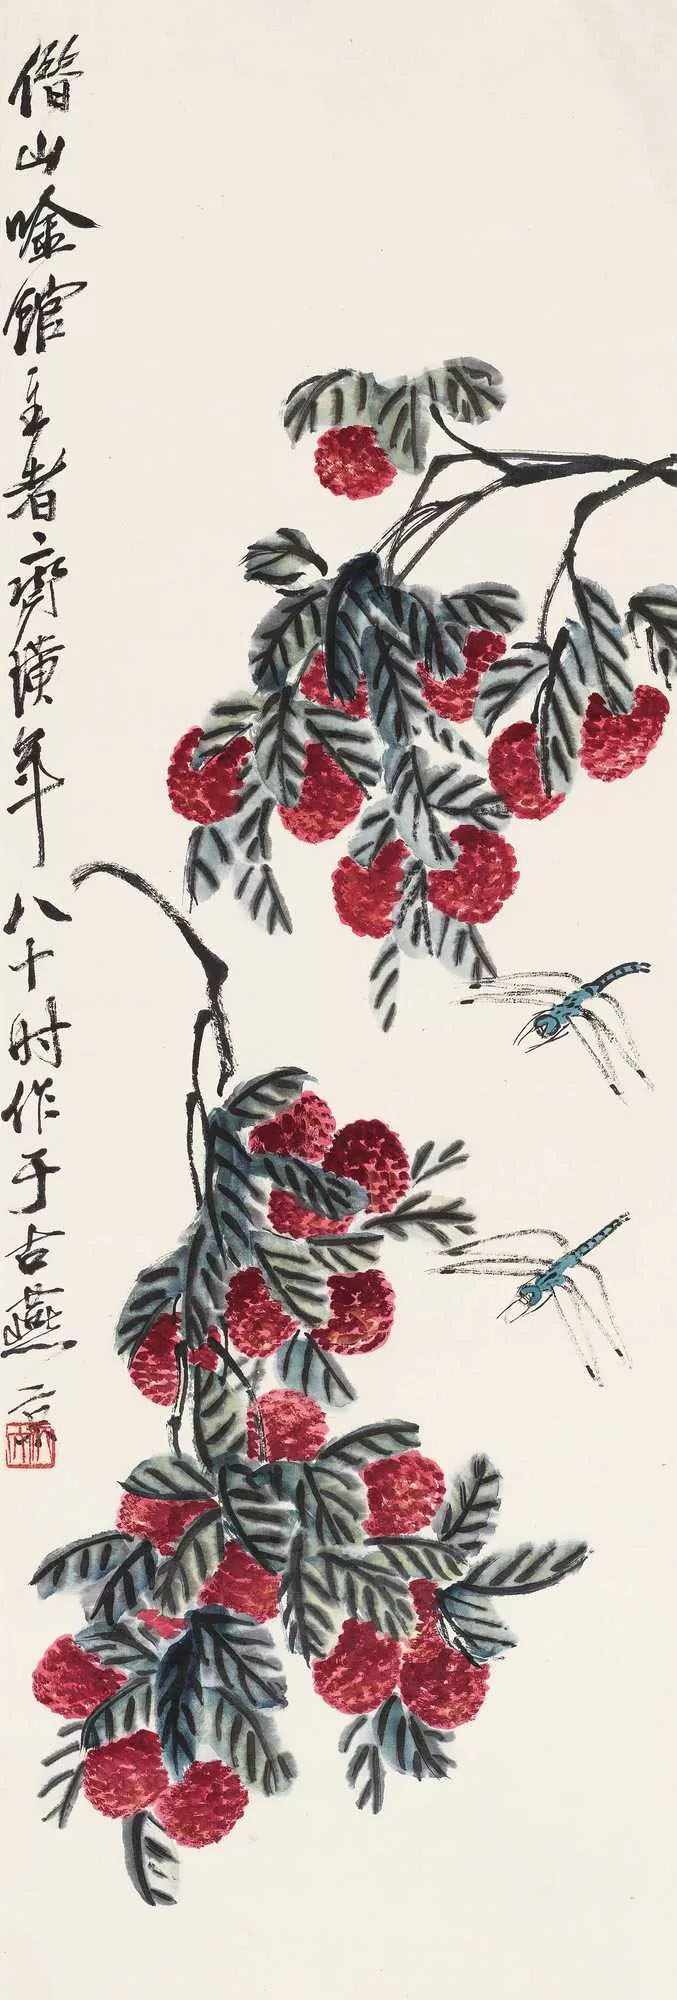 借山唫館主者齊璜年八十时作于古燕京